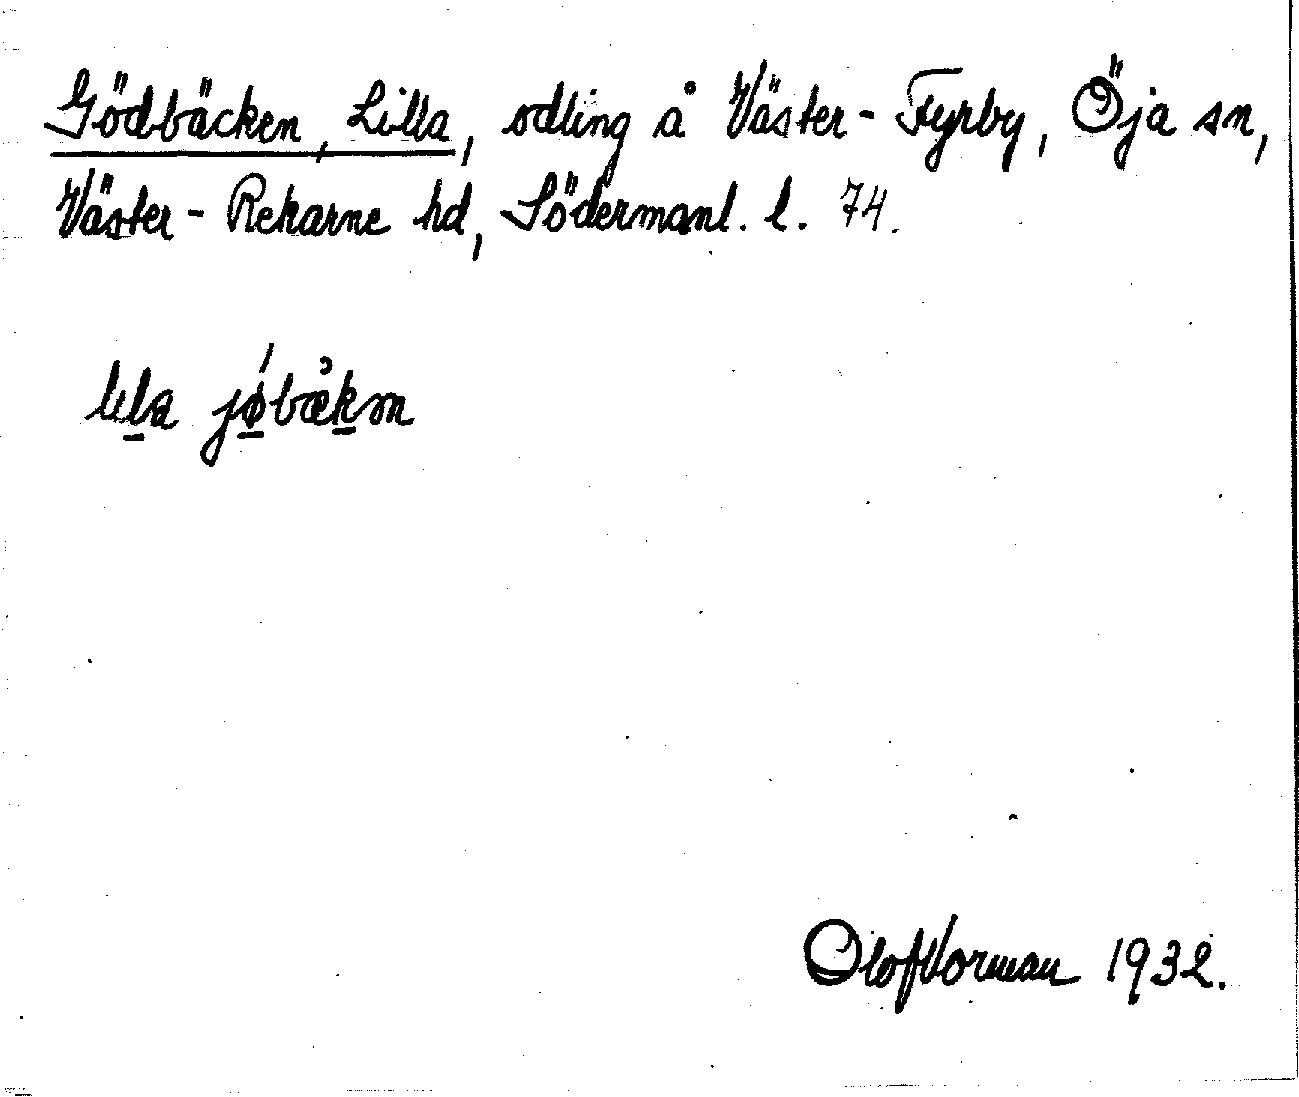 Gödbäcken, Lilla, odling å Väster-Fyrby, Öja sn,
Väster-Rekarne hd, Södermanl. l. 74.
lila jøbækm
Olof Vorman 1932.